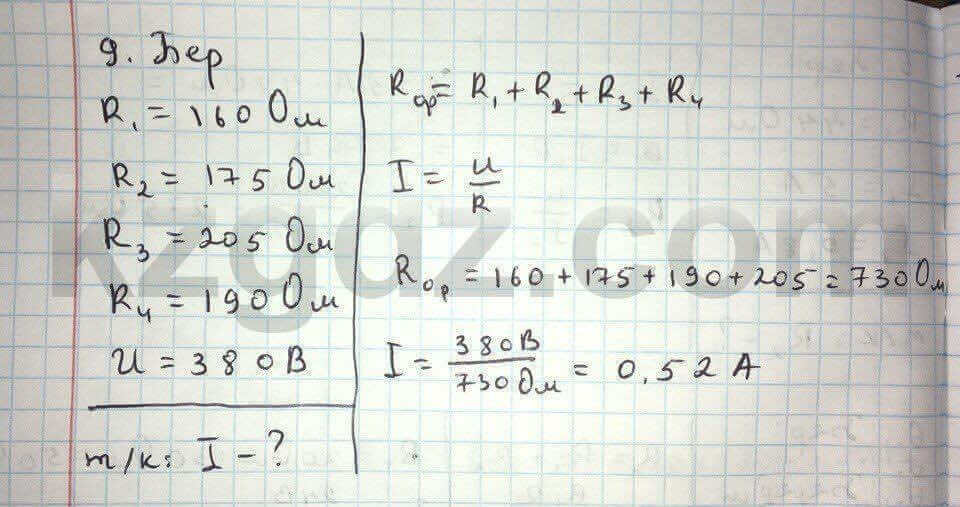 9. Бер
R₁ = 160 Ом
R₂ = 175 Ом
R₃ = 205 Ом
R₄ = 190 Ом
U = 380 В
т/к: I - ?
Rор = R₁ + R₂ + R₃ + R₄
I = U/R
Rор = 160 + 175 + 190 + 205 = 730 Ом
I = 380 В/730 Ом = 0,52 А
kzgdz.com